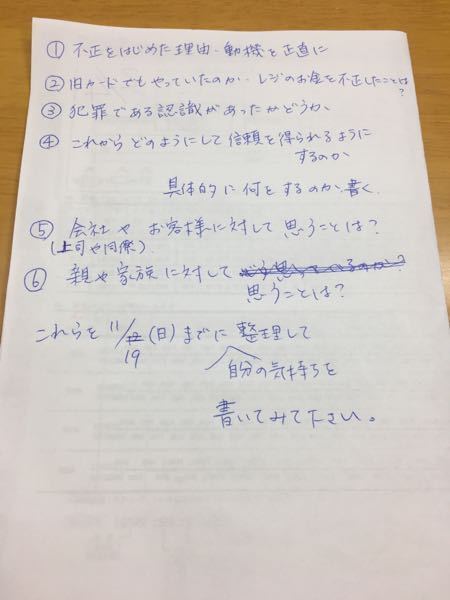 ① 不正をはじめた理由・動機を正直に
② 旧カードでもやっていたのか・レジのお金を不正したことは?
③ 犯罪である認識があったかどうか
④ これからどのようにして信頼を得られるように
するのか
具体的に何をするのか、書く
⑤ 会社や お客様に対して思うことは?
(上司や同僚)
⑥ 親や家族に対して どう思っているのか?
思うことは?
これらを 11/19 (日)までに整理して
自分の気持ちを
書いてみて下さい。